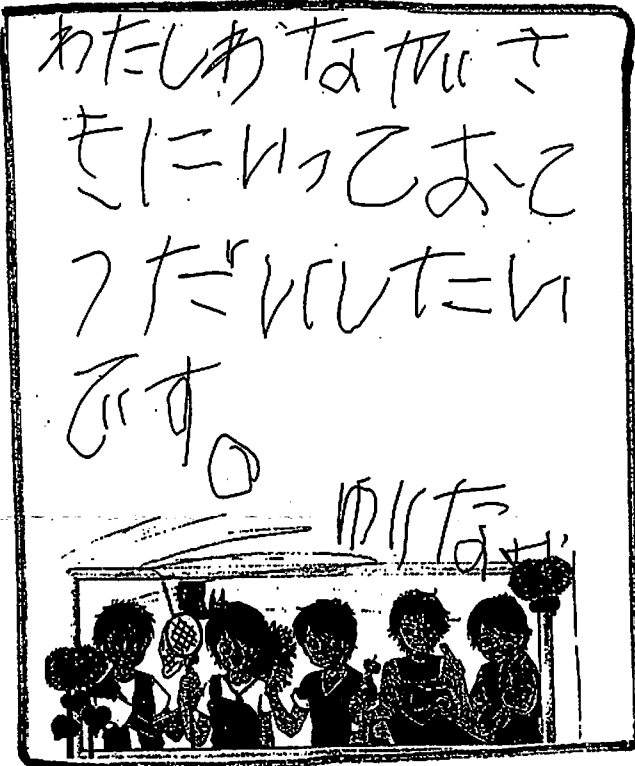 わたしわながさ
きにいっておて
つだいしたい
です。
ゆりな